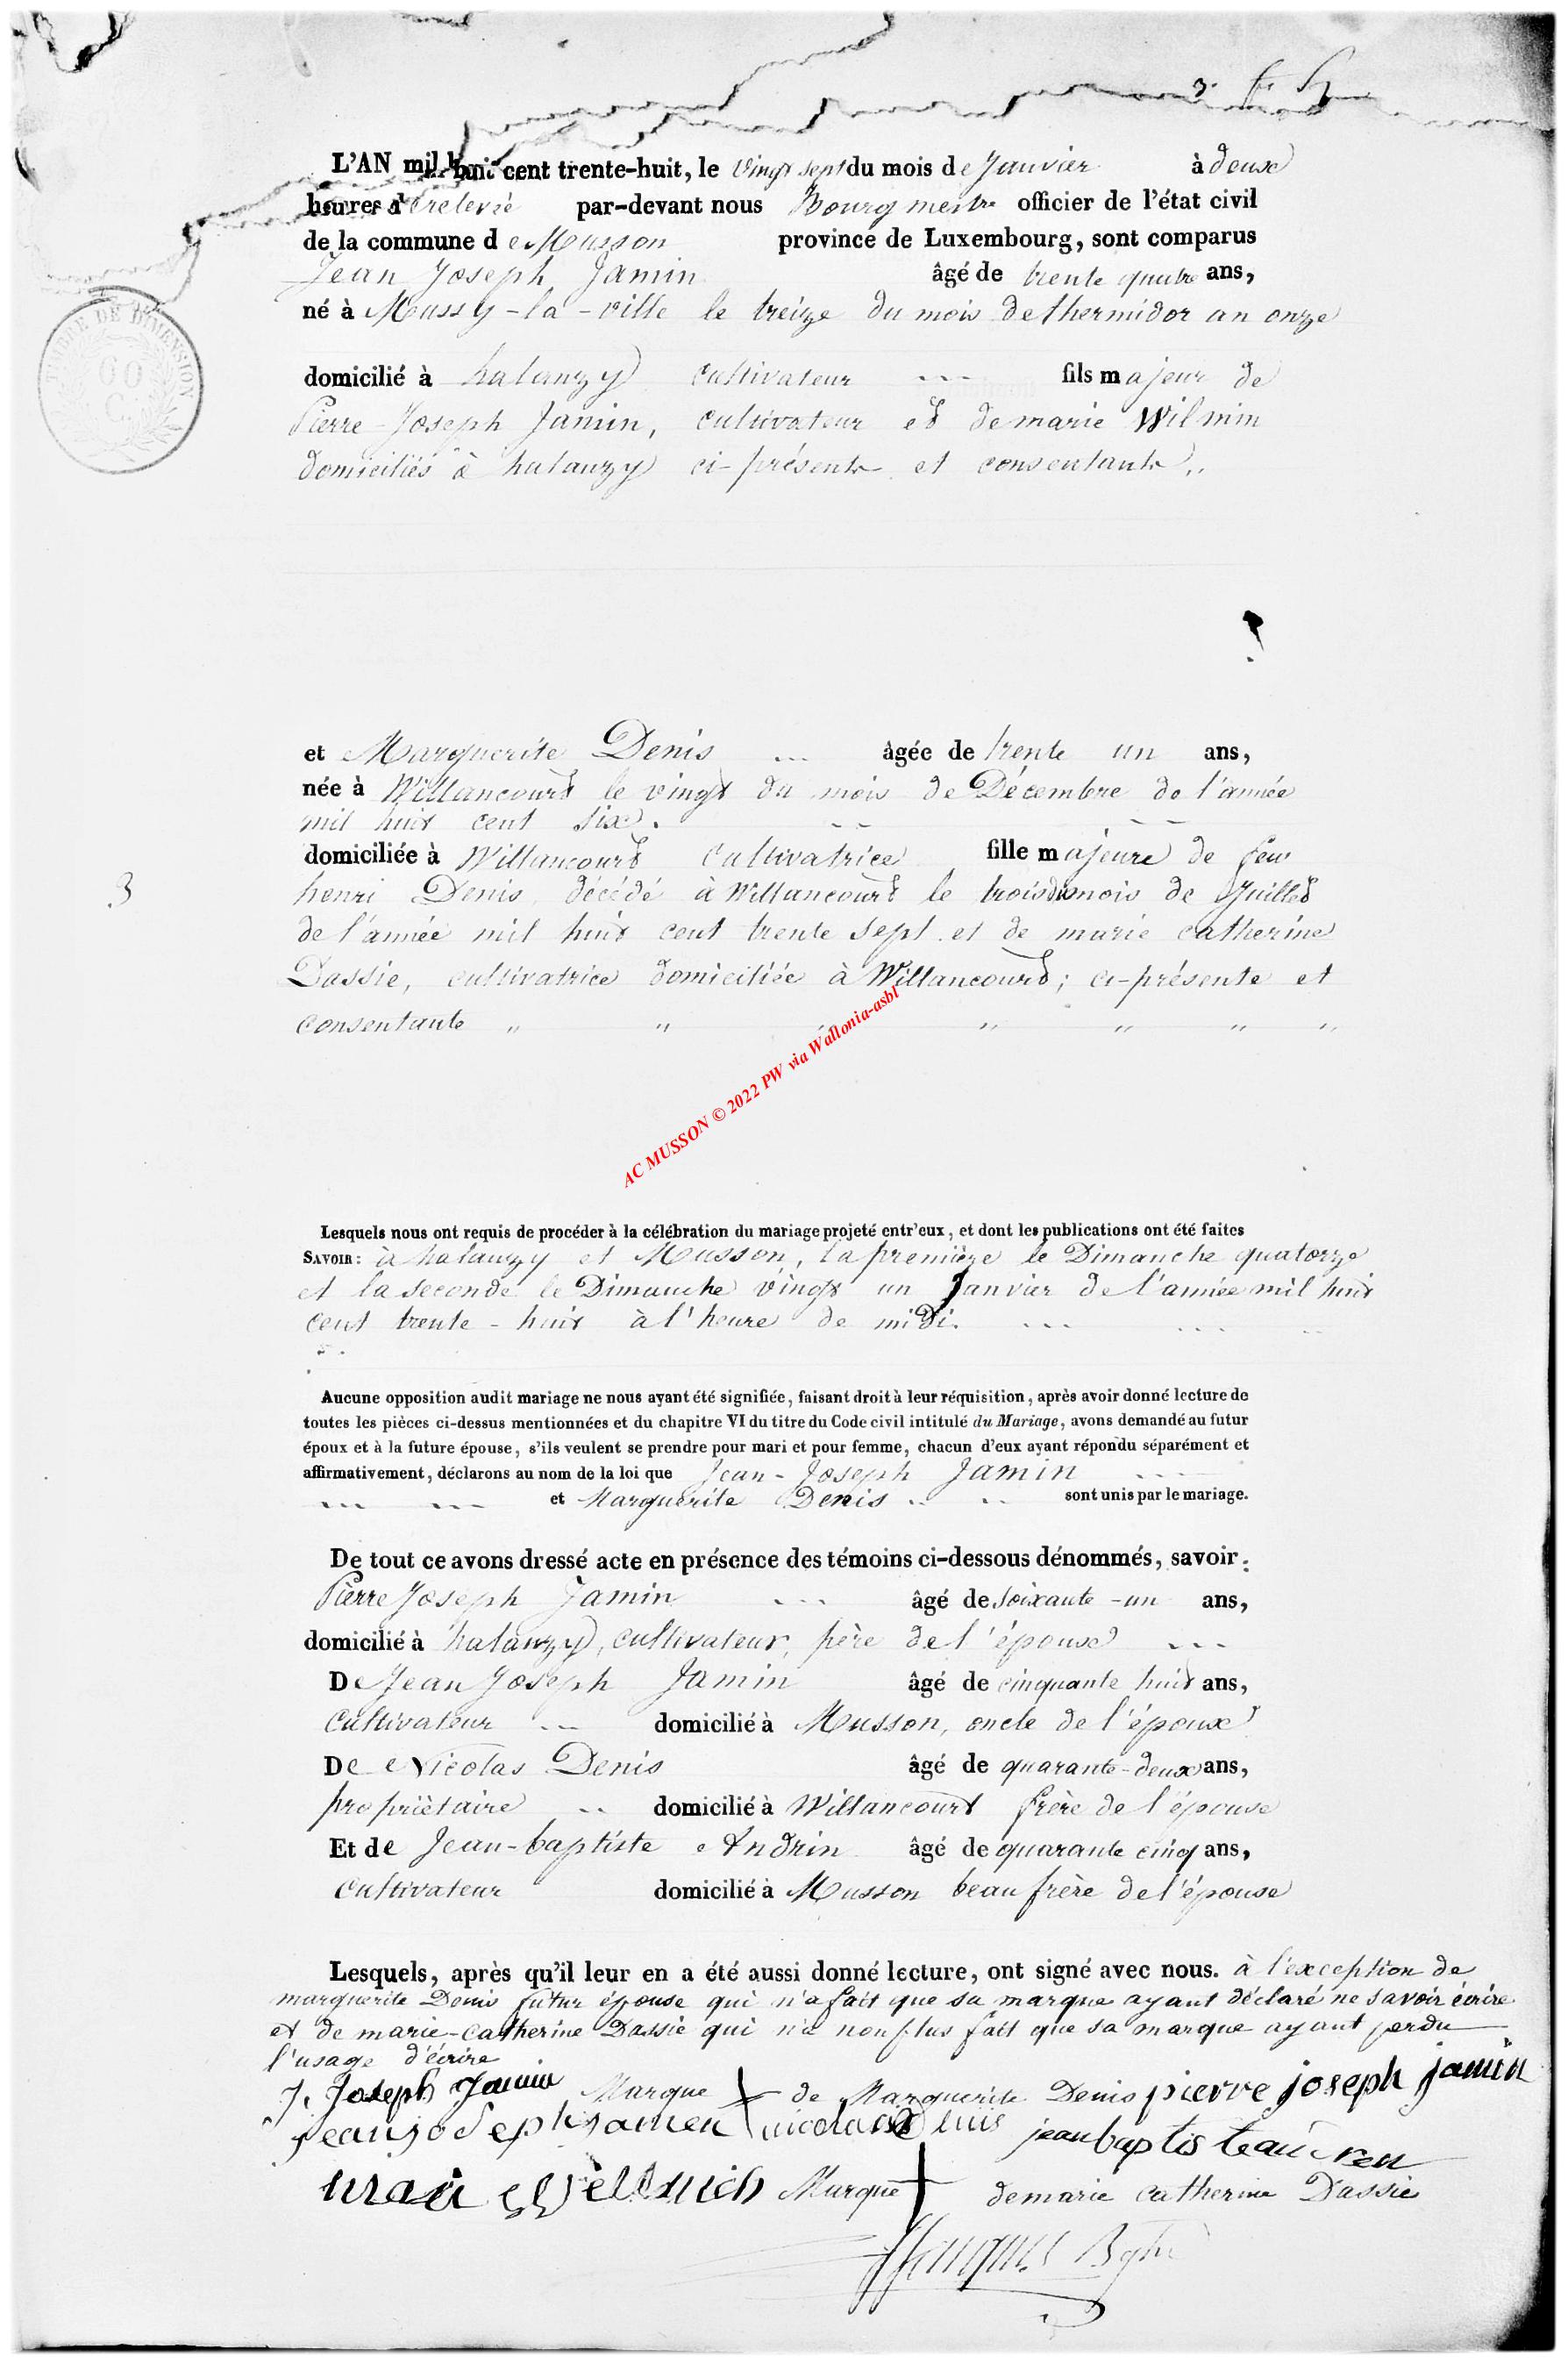 L'AN mil huit cent trente-huit, le vingt sept du mois de Janvier à deux
heures de relevée par-devant nous Bourgmestre officier de l'état civil
de la commune de Musson province de Luxembourg, sont comparus
Jean Joseph Jamin âgé de trente quatre ans,
TIMBRE DE DIMENSION
60
C.
né à Mussy-la-ville le treize du mois de thermidor an onze
domicilié à halanzy cultivateur fils majeur de
Pierre-Joseph Jamin, cultivateur et de marie Wilmin
domiciliés à halanzy ci-présents et consentants,,
et Marguerite Denis âgée de trente un ans,
née à Willancourt le vingt du mois de Décembre de l'année
mil huit cent six.
domiciliée à Willancourt cultivatrice fille majeure de feu
3
henri Denis décédé à Willancourt le trois du mois de Juillet
de l'année mil huit cent trente sept et de marie catherine
Dassie, cultivatrice domiciliée à Willancourt; ci-présente et
consentante ,, ,, ,, ,, ,, ,, ,,
AC MUSSON © 2022 PW via Wallonia-asbl
Lesquels nous ont requis de procéder à la célébration du mariage projeté entr'eux, et dont les publications ont été faites
SAVOIR: à halanzy et Musson, la première le Dimanche quatorze
et la seconde le Dimanche vingt un Janvier de l'année mil huit
cent trente-huit à l'heure de midi.
Aucune opposition audit mariage ne nous ayant été signifiée, faisant droit à leur réquisition, après avoir donné lecture de
toutes les pièces ci-dessus mentionnées et du chapitre VI du titre du Code civil intitulé du Mariage, avons demandé au futur
époux et à la future épouse, s'ils veulent se prendre pour mari et pour femme, chacun d'eux ayant répondu séparément et
affirmativement, déclarons au nom de la loi que Jean-Joseph Jamin
et Marguerite Denis sont unis par le mariage.
De tout ce avons dressé acte en présence des témoins ci-dessous dénommés, savoir:
Pierre Joseph Jamin âgé de soixante-un ans,
domicilié à halanzy, cultivateur, père de l'époux
De Jean Joseph Jamin âgé de cinquante huit ans,
cultivateur domicilié à Musson, oncle de l'époux
De Nicolas Denis âgé de quarante-deux ans,
propriétaire domicilié à Willancourt frère de l'épouse
Et de Jean-baptiste Andrin âgé de quarante cinq ans,
cultivateur domicilié à Musson beau frère de l'épouse
Lesquels, après qu'il leur en a été aussi donné lecture, ont signé avec nous. à l'exception de
marguerite Denis futur épouse qui n'a fait que sa marque ayant déclaré ne savoir écrire
et de marie-catherine Dassie qui n'a non plus fait que sa marque ayant perdu
l'usage d'écrire
J. Joseph Jamin Marque de Marguerite Denis pierre joseph jamin
jean joseph jamen nicolas denis jean baptis te
Marque de marie catherine Dassie